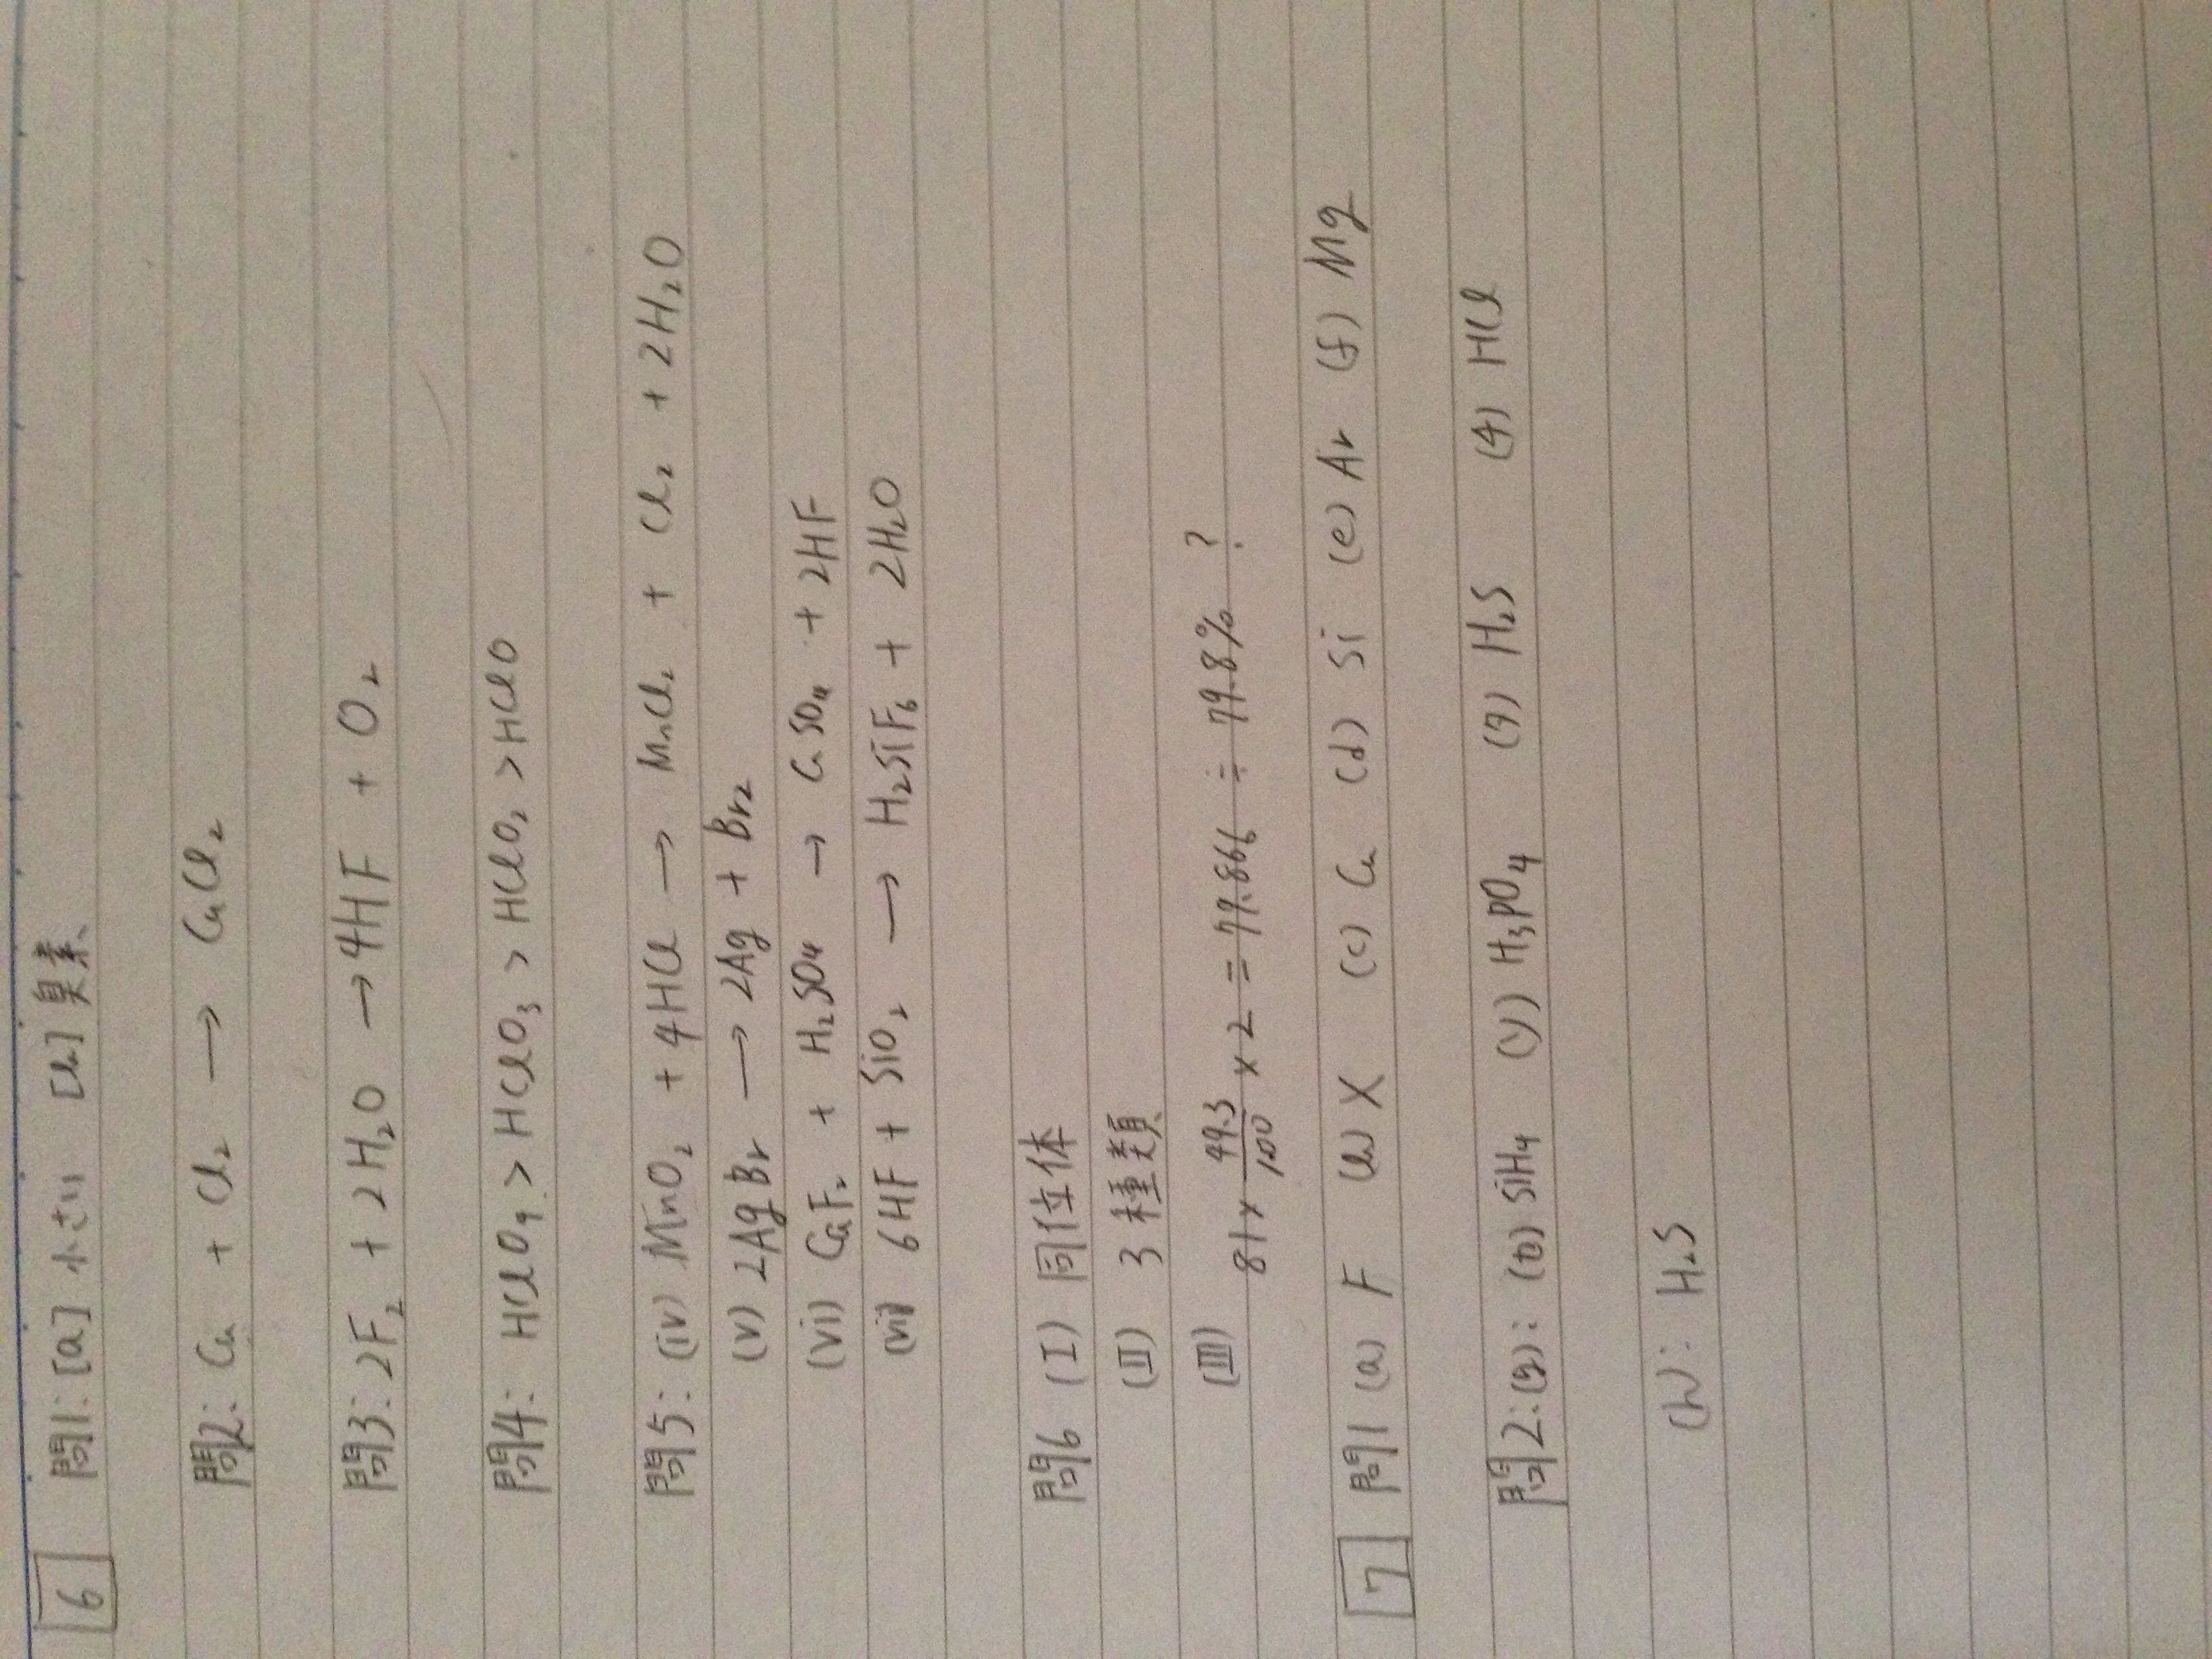 6 問1:[a] 小さい [b] 臭素
問2: Cu + Cl₂ → CuCl₂
問3: 2F₂ + 2H₂O → 4HF + O₂
問4: HClO₄ > HClO₃ > HClO₂ > HClO
問5: (iv) MnO₂ + 4HCl → MnCl₂ + Cl₂ + 2H₂O
(v) 2AgBr → 2Ag + Br₂
(vi) CaF₂ + H₂SO₄ → CaSO₄ + 2HF
(vii) 6HF + SiO₂ → H₂SiF₆ + 2H₂O
問6 (I) 同位体
(II) 3種類
(III) 81 × 49.3/100 × 2 = 79.866 ≒ 79.8% ?
7 問1 (a) F (b) X (c) Cu (d) Si (e) Ar (f) Mg
問2:(g): (ウ) SiH₄ (ソ) H₃PO₄ (タ) H₂S (チ) HCl
(h): H₂S